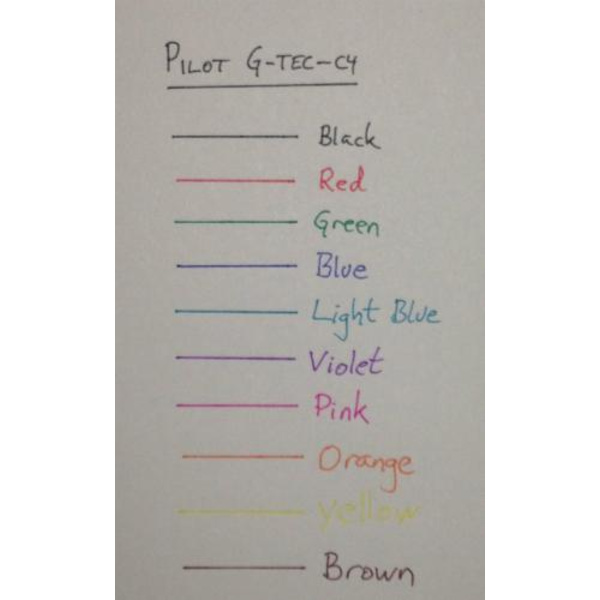 PILOT G-TEC-C4
Black
Red
Green
Blue
Light Blue
Violet
Pink
Orange
Yellow
Brown